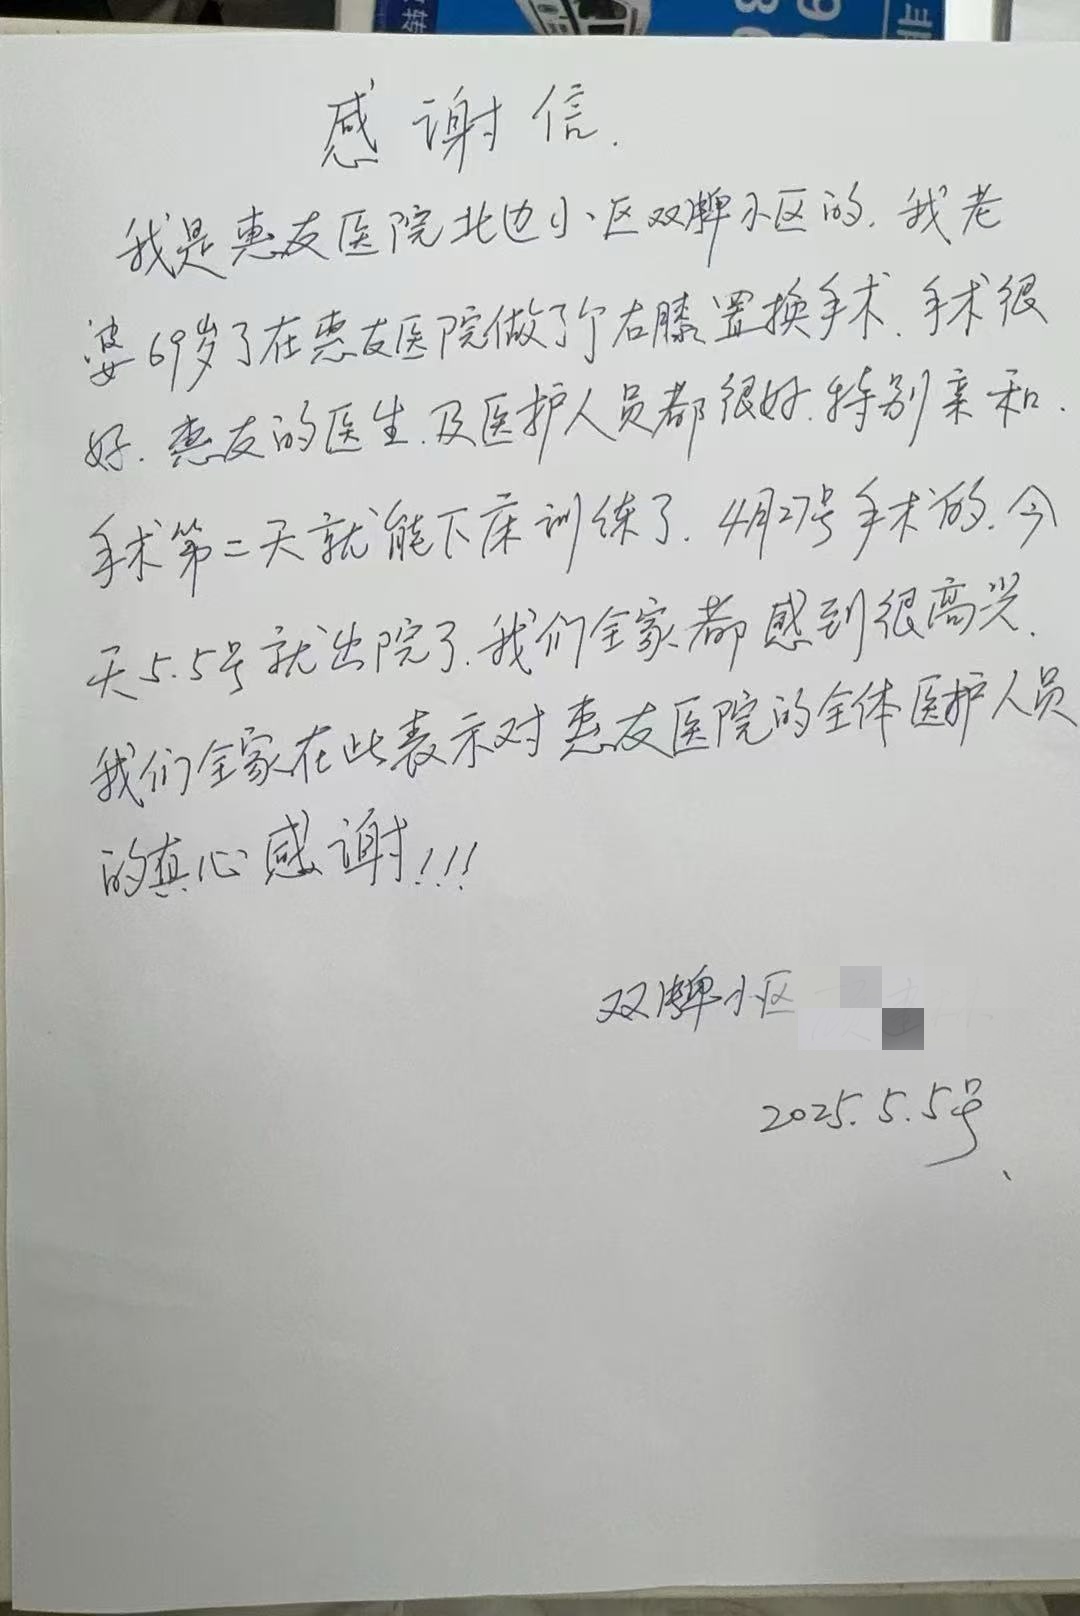 感谢信.
我是惠友医院北边小区双牌小区的.我老
婆69岁了在惠友医院做了个右膝置换手术.手术很
好.惠友的医生.及医护人员都很好.特别亲和.
手术第二天就能下床训练了.4月27号手术的.今
天5.5号就出院了.我们全家都感到很高兴.
我们全家在此表示对惠友医院的全体医护人员
的真心感谢!!!
双牌小区
2025.5.5号